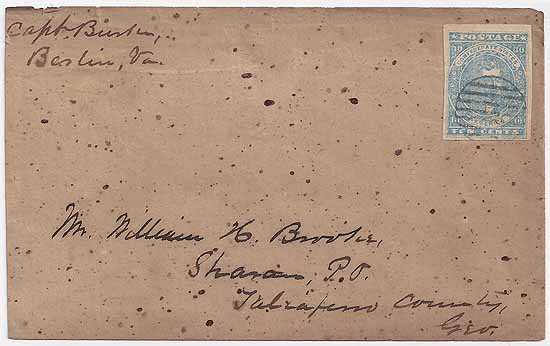 Capt. Burke,
Berlin, Va.
POSTAGE
10 CONFEDERATE STATES 10
10 10
TEN CENTS
Mr. William H. Brooke,
Sharon, P.O.
Taliafero County,
Geo.